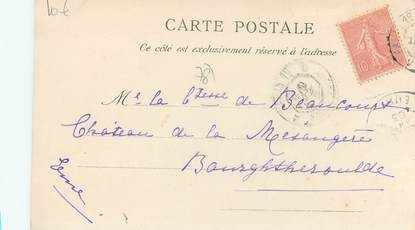 10€
CARTE POSTALE
Ce côté est exclusivement réservé à l'adresse
78
Me la Ctesse de Beaucourt
Château de la Mesangère
Bourgtheroulde
Eure